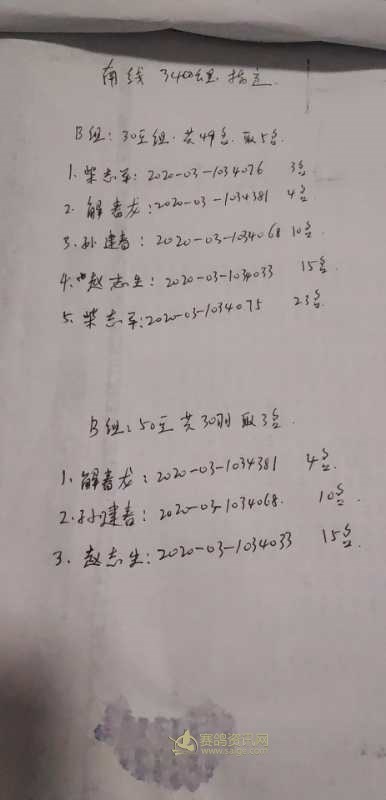 南线 340公里 指定
B组：30元组 共49名 取5名
1、柴志军：2020-03-1034076 3名
2、解春龙：2020-03-1034381 4名
3、孙建春：2020-03-1034068 10名
4、赵志生：2020-03-1034033 15名
5、柴志军：2020-03-1034075 23名
B组：50元 共30羽 取3名
1、解春龙：2020-03-1034381 4名
2、孙建春：2020-03-1034068 10名
3、赵志生：2020-03-1034033 15名
赛鸽资讯网
www.saige.com